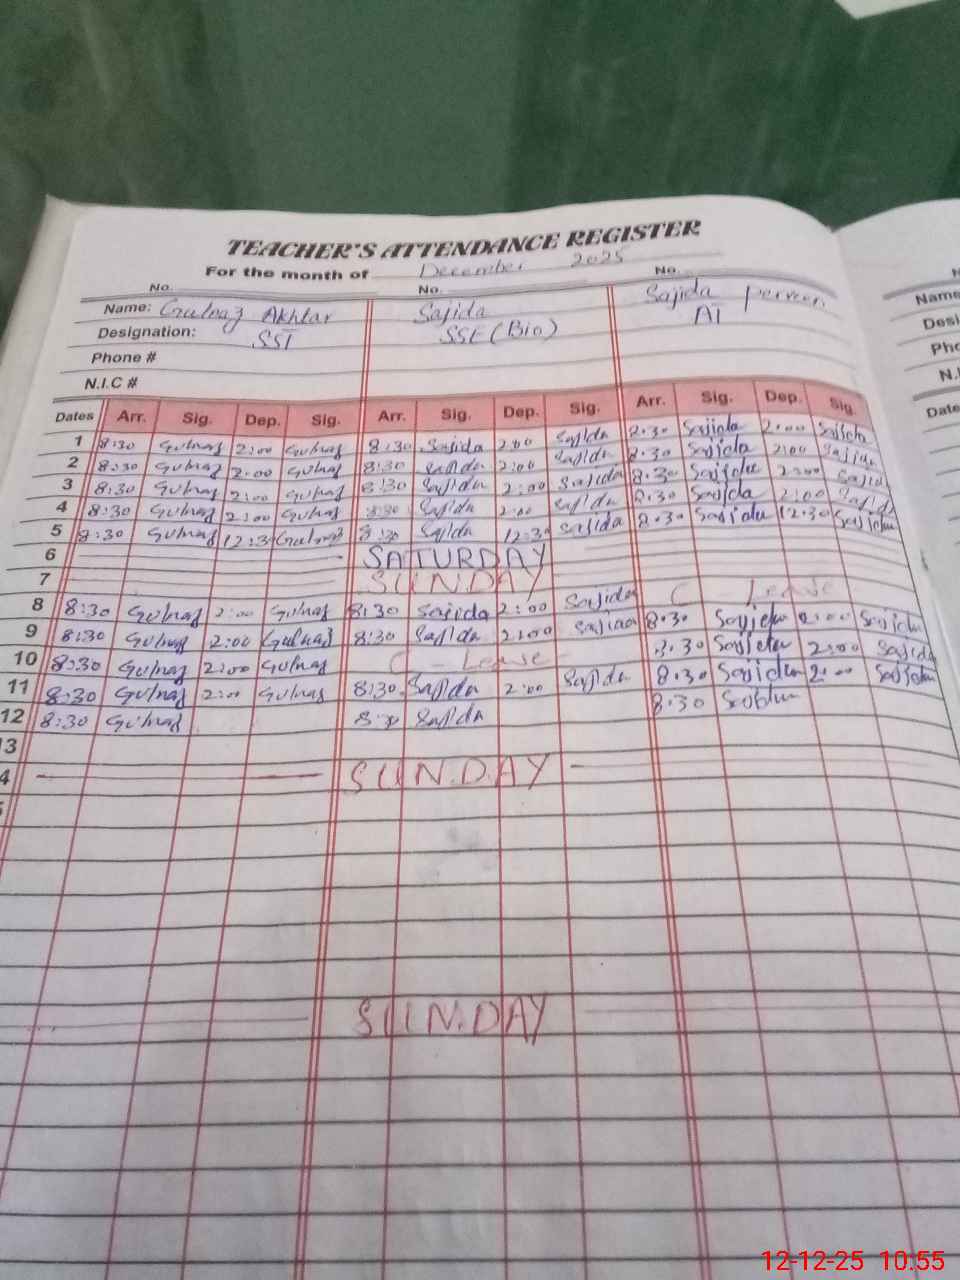 TEACHER'S ATTENDANCE REGISTER
For the month of December 2025
No. No. No.
Name: Gulnaz Akhtar Sajida Sajida Perveen
Designation: SST SSE (Bio) AT
Phone #
N.I.C #
Dates Arr. Sig. Dep. Sig. Arr. Sig. Dep. Sig. Arr. Sig. Dep. Sig.
1 8:30 Gulnaz 2:00 Gulnaz 8:30 Sajida 2:00 Sajida 8:30 Sajida 2:00 Sajida
2 8:30 Gulnaz 2:00 Gulnaz 8:30 Sajida 2:00 Sajida 8:30 Sajida 2:00 Sajida
3 8:30 Gulnaz 2:00 Gulnaz 8:30 Sajida 2:00 Sajida 8:30 Sajida 2:00 Sajid
4 8:30 Gulnaz 2:00 Gulnaz 8:30 Sajida 2:00 Sajida 8:30 Sajida 2:00 Sajida
5 8:30 Gulnaz 12:3 Gulnaz 8:30 Sajida 12:30 Sajida 8:30 Sajida 12:30 Sajida
6 SATURDAY
7 SUNDAY
8 8:30 Gulnaz 2:00 Gulnaz 8:30 Sajida 2:00 Sajida C - Leave
9 8:30 Gulnaz 2:00 Gulnaz 8:30 Sajida 2:00 Sajida 8:30 Sajida 2:00 Sajida
10 8:30 Gulnaz 2:00 Gulnaz C - Leave 8:30 Sajida 2:00 Sajida
11 8:30 Gulnaz 2:00 Gulnaz 8:30 Sajida 2:00 Sajida 8:30 Sajida 2:00 Sajida
12 8:30 Gulnaz 8:30 Sajida 8:30 Sajida
13
4 SUNDAY
SUNDAY
Name
Desi
Pho
N.I
Date
12-12-25 10:55